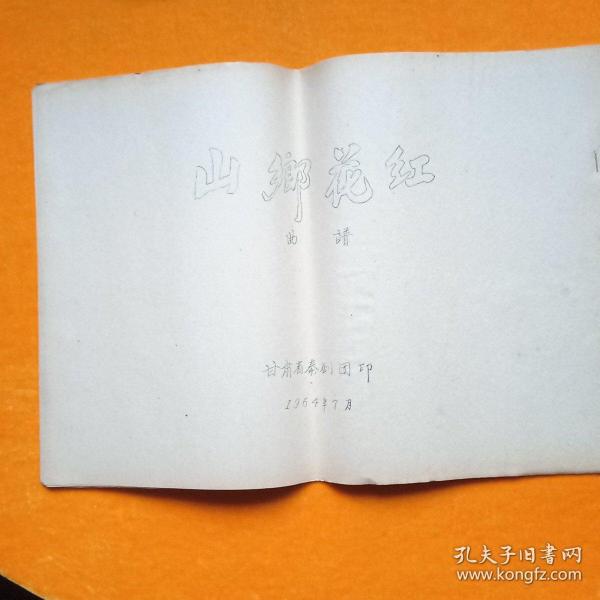 山鄉花红
曲譜
甘肃省秦剧团印
1964年7月
孔夫子旧書网
www.kongfz.com